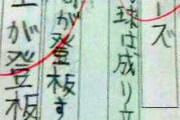 ーズ
球は成り立
が登板す
が登板